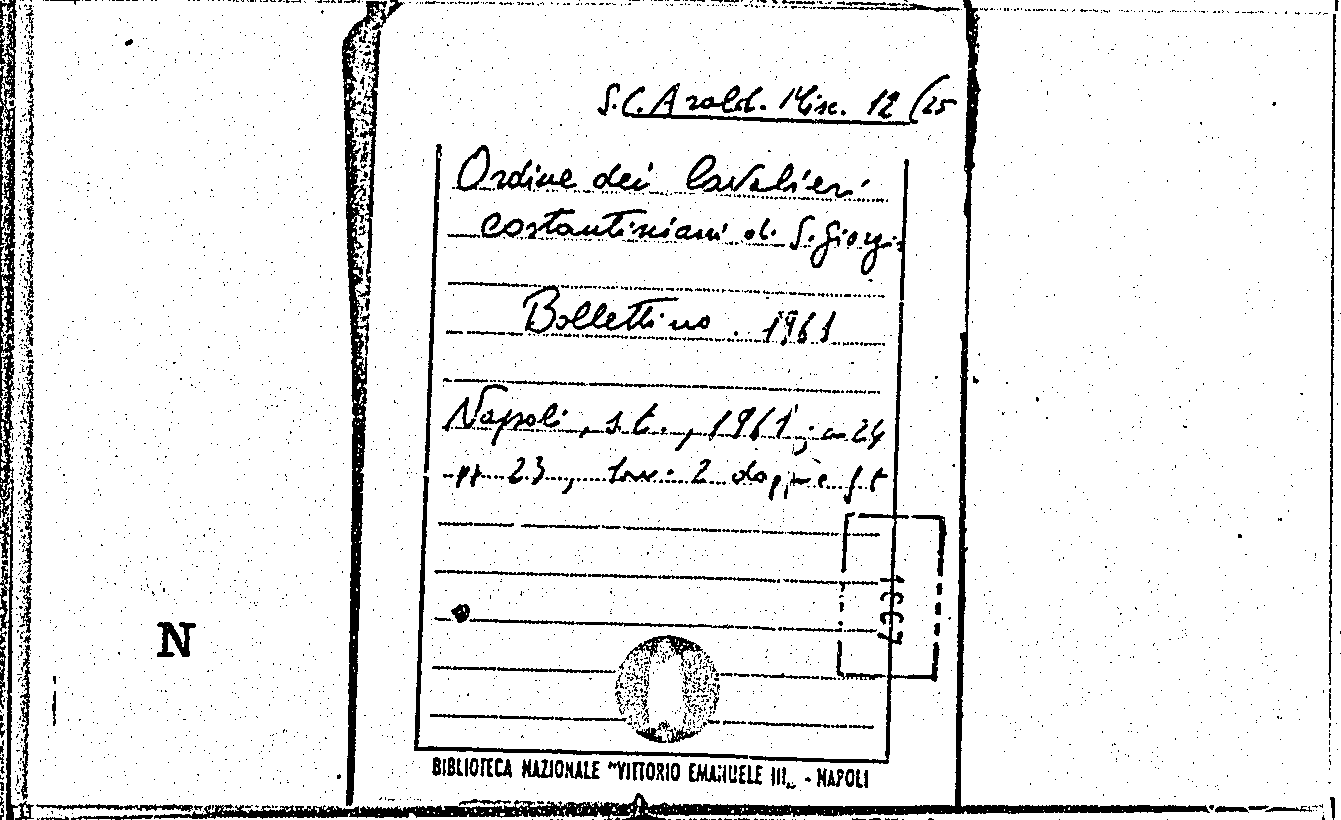 S.C. Arald. Misc. 12 (25
Ordine dei Cavalieri
costantiniani di S. Giorgio
Bollettino. 1961
Napoli, s.t., 1961; in 24
pp 23, tav. 2 doppie f.t
N
BIBLIOTECA NAZIONALE "VITTORIO EMANUELE III„ - NAPOLI